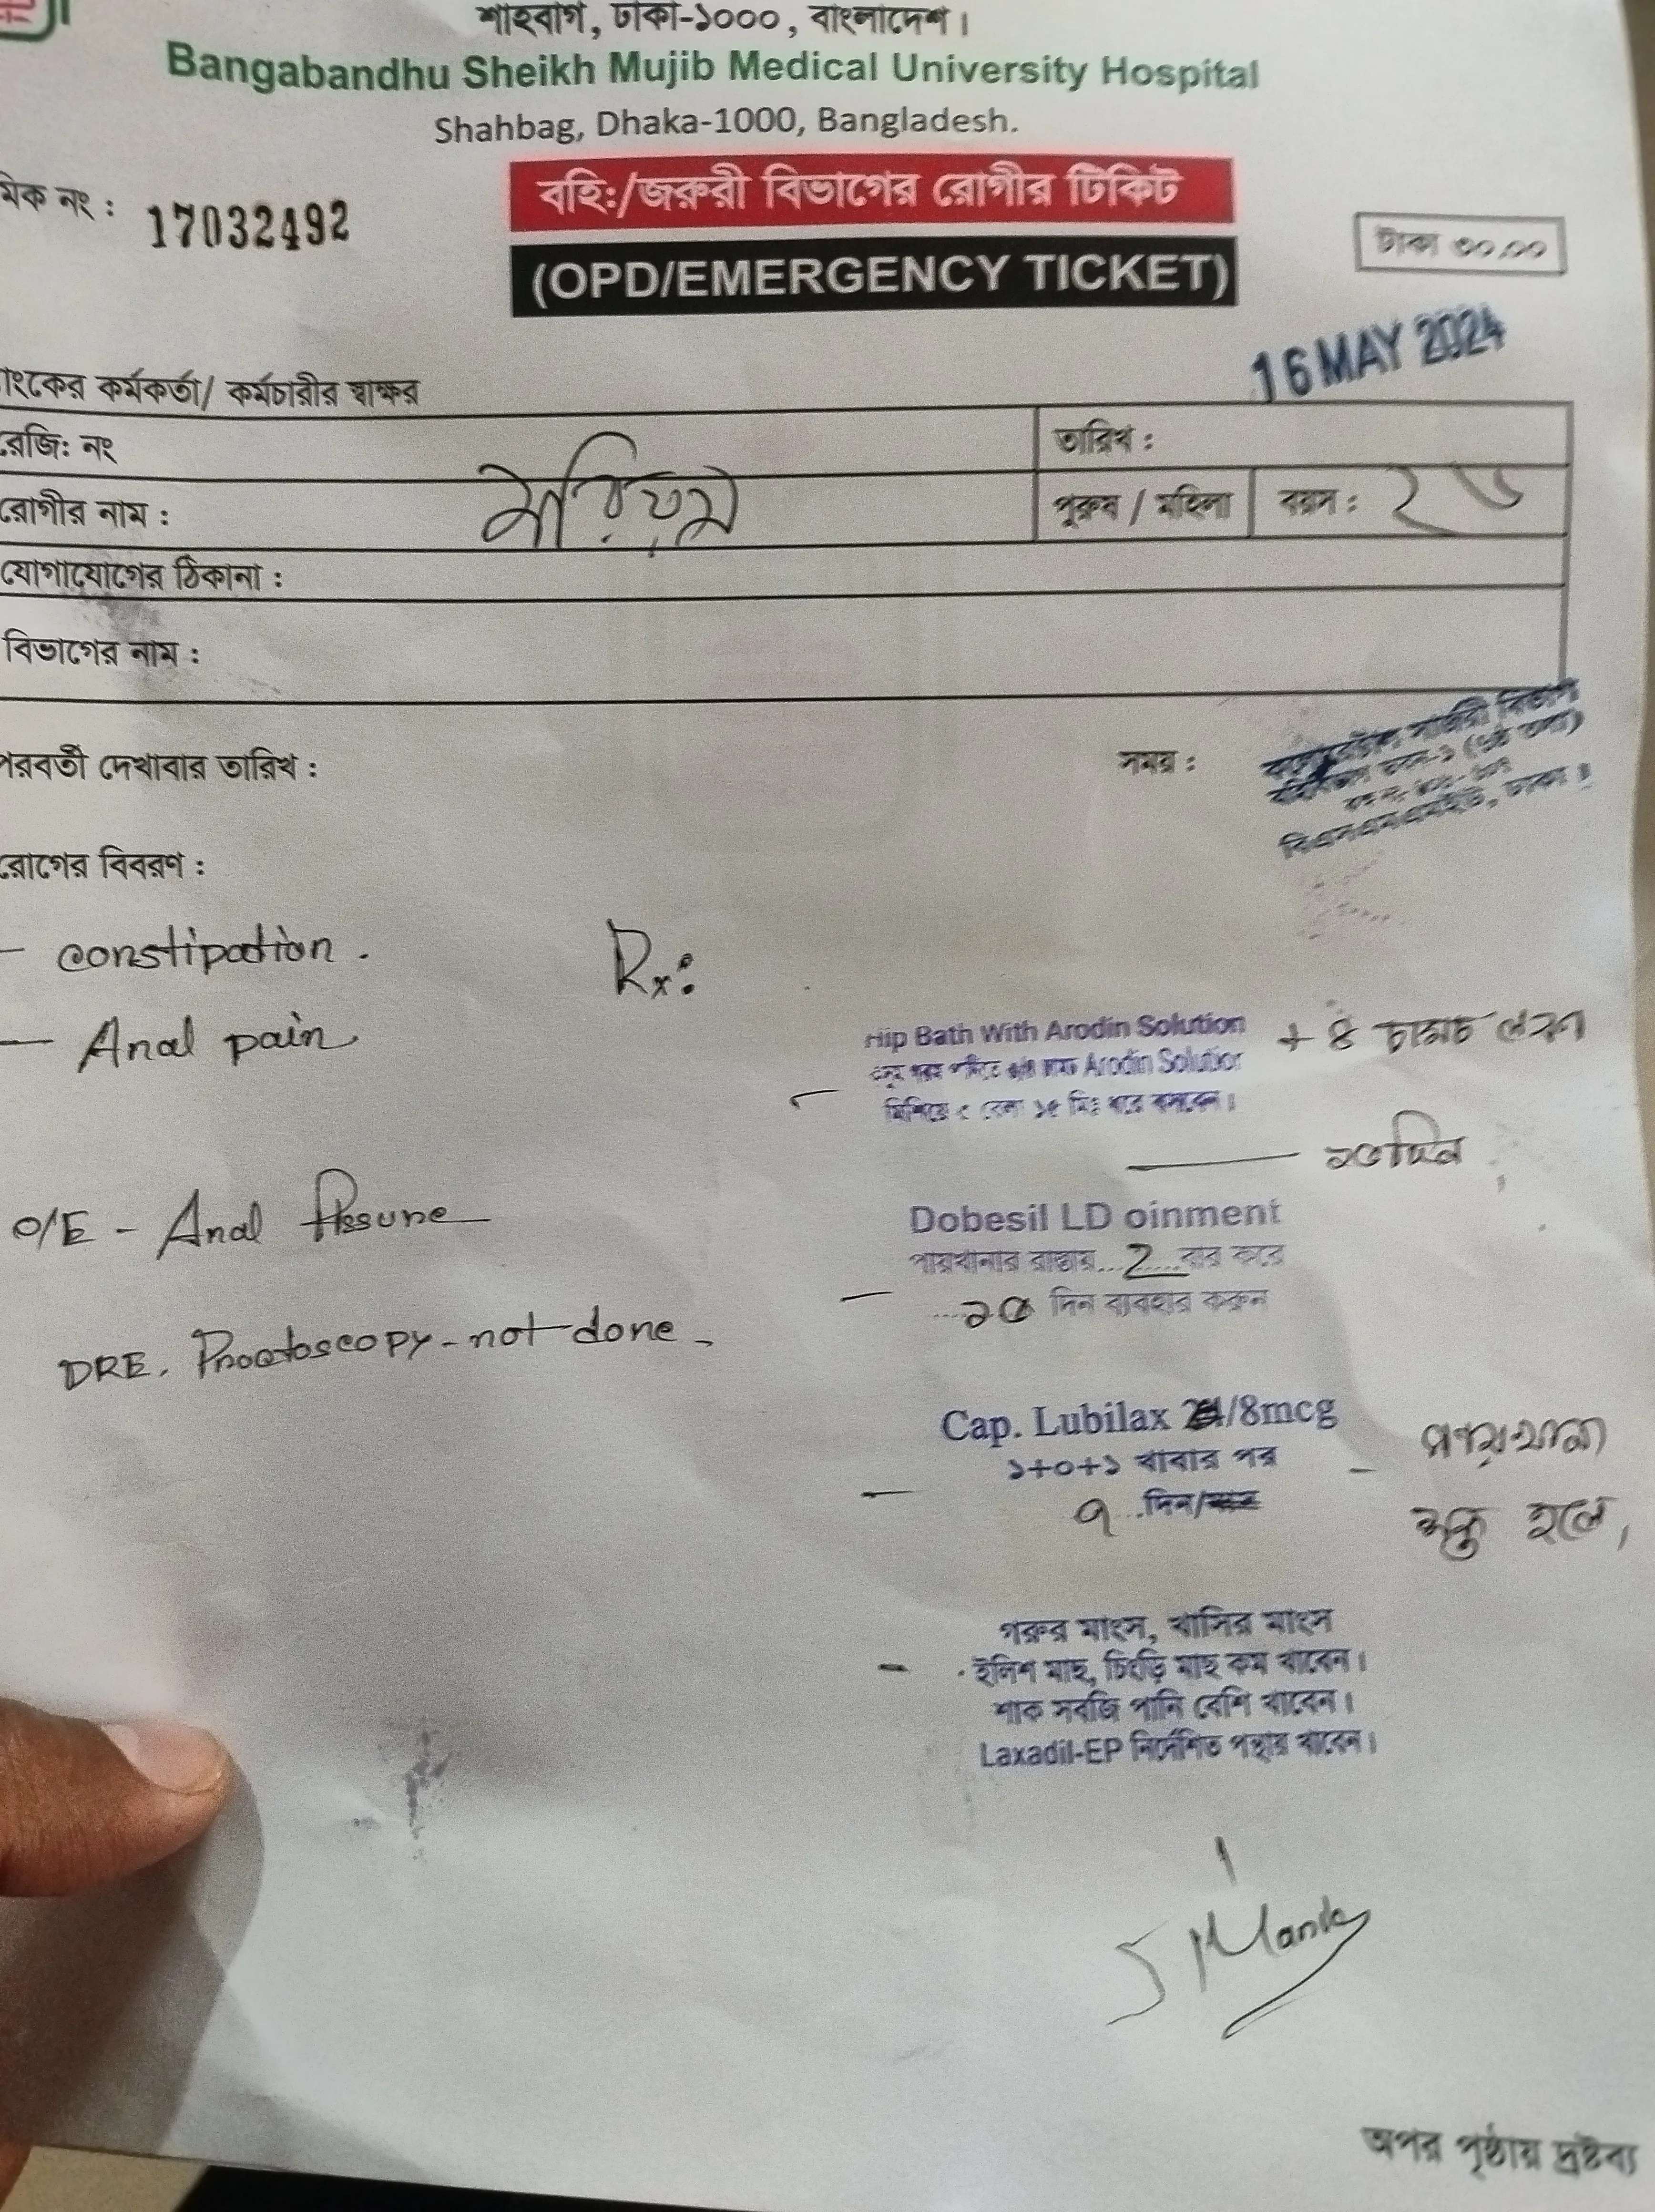 শাহবাগ, ঢাকা-১০০০, বাংলাদেশ।
Bangabandhu Sheikh Mujib Medical University Hospital
Shahbag, Dhaka-1000, Bangladesh.
মিক নং : 17032492
বহি:/জরুরী বিভাগের রোগীর টিকিট
(OPD/EMERGENCY TICKET)
টাকা ৩০.০০
16 MAY 2024
াংকের কর্মকর্তা/ কর্মচারীর স্বাক্ষর
রেজি: নং
তারিখ :
রোগীর নাম : মরিয়ম
পুরুষ / মহিলা
বয়স :
যোগাযোগের ঠিকানা :
বিভাগের নাম :
পরবর্তী দেখাবার তারিখ :
সময় :
কলোরেক্টাল সার্জারী বিভাগ
বহির্বিভাগ ভবন-১
বিএসএমএমইউ, ঢাকা।
রোগের বিবরণ :
- constipation.
- Anal pain
O/E - Anal fissure
DRE. Proctoscopy - not done -
Rx:
Hip Bath With Arodin Solution + ৪ চামচ লবণ
গরম পানিতে Arodin Solution
মিশিয়ে বেলা ১৫ মিঃ ধরে বসবেন।
Dobesil LD oinment
পায়খানার রাস্তায়...2...বার করে
দিন ব্যবহার করুন
Cap. Lubilax /8mcg
১+০+১ খাবার পর
৭ ..দিন/
- পায়খানা
শক্ত হলে,
গরুর মাংস, খাসির মাংস
ইলিশ মাছ, চিংড়ি মাছ কম খাবেন।
শাক সবজি পানি বেশি খাবেন।
Laxadil-EP নির্দেশিত পন্থায় খাবেন।
অপর পৃষ্ঠায় দ্রষ্টব্য